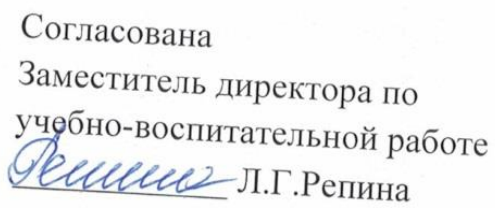 Согласована
Заместитель директора по
учебно-воспитательной работе
Л.Г.Репина